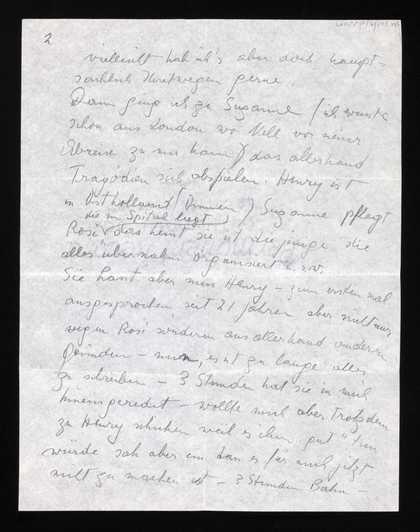 2
vielleicht hab ich's aber doch haupt-
sächlich Huretwegen gerne.
Dann ging ich zu Susanne (ich wusste
schon aus London wo Nell vor meiner
Abreise zu mir kam) dass allerhand
Tragödien sich abspielen. Henry ist
in Ostholland ( ) Susanne pflegt
die im Spital liegt
Rosi das heisst sie ist die jenige die
alles übernahm organisiert u.s.w.
Sie hasst aber nun Henry – zum ersten mal
ausgesprochen seit 21 Jahren aber nicht nur
wegen Rosi sondern aus allerhand anderen
Gründen – nun, es ist zu lange alles
zu schreiben – 3 Stunden hat sie in mich
hineingeredet – wollte mich aber trotzdem
zu Henry schicken weil es ihm gut "tun
würde sah aber ein dass es für mich jetzt
nicht zu machen ist – 3 Stunden Bahn –